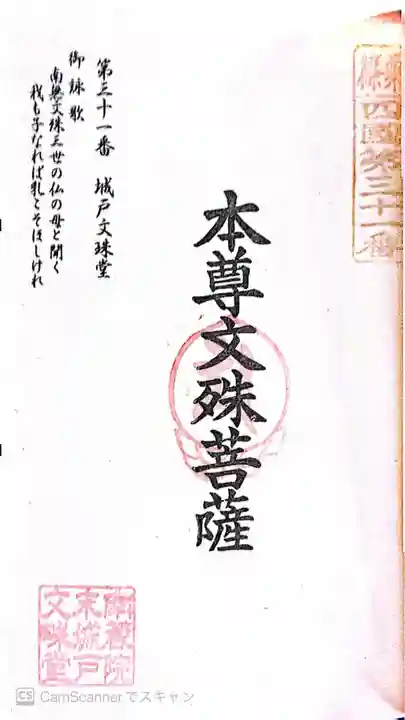 四國第三十一番
本尊文殊菩薩
第三十一番 城戸文珠堂
御詠歌
南無文殊三世の仏の母と聞く
我も子なれば乳こそほしけれ
末城戸
文珠堂
CS CamScannerでスキャン